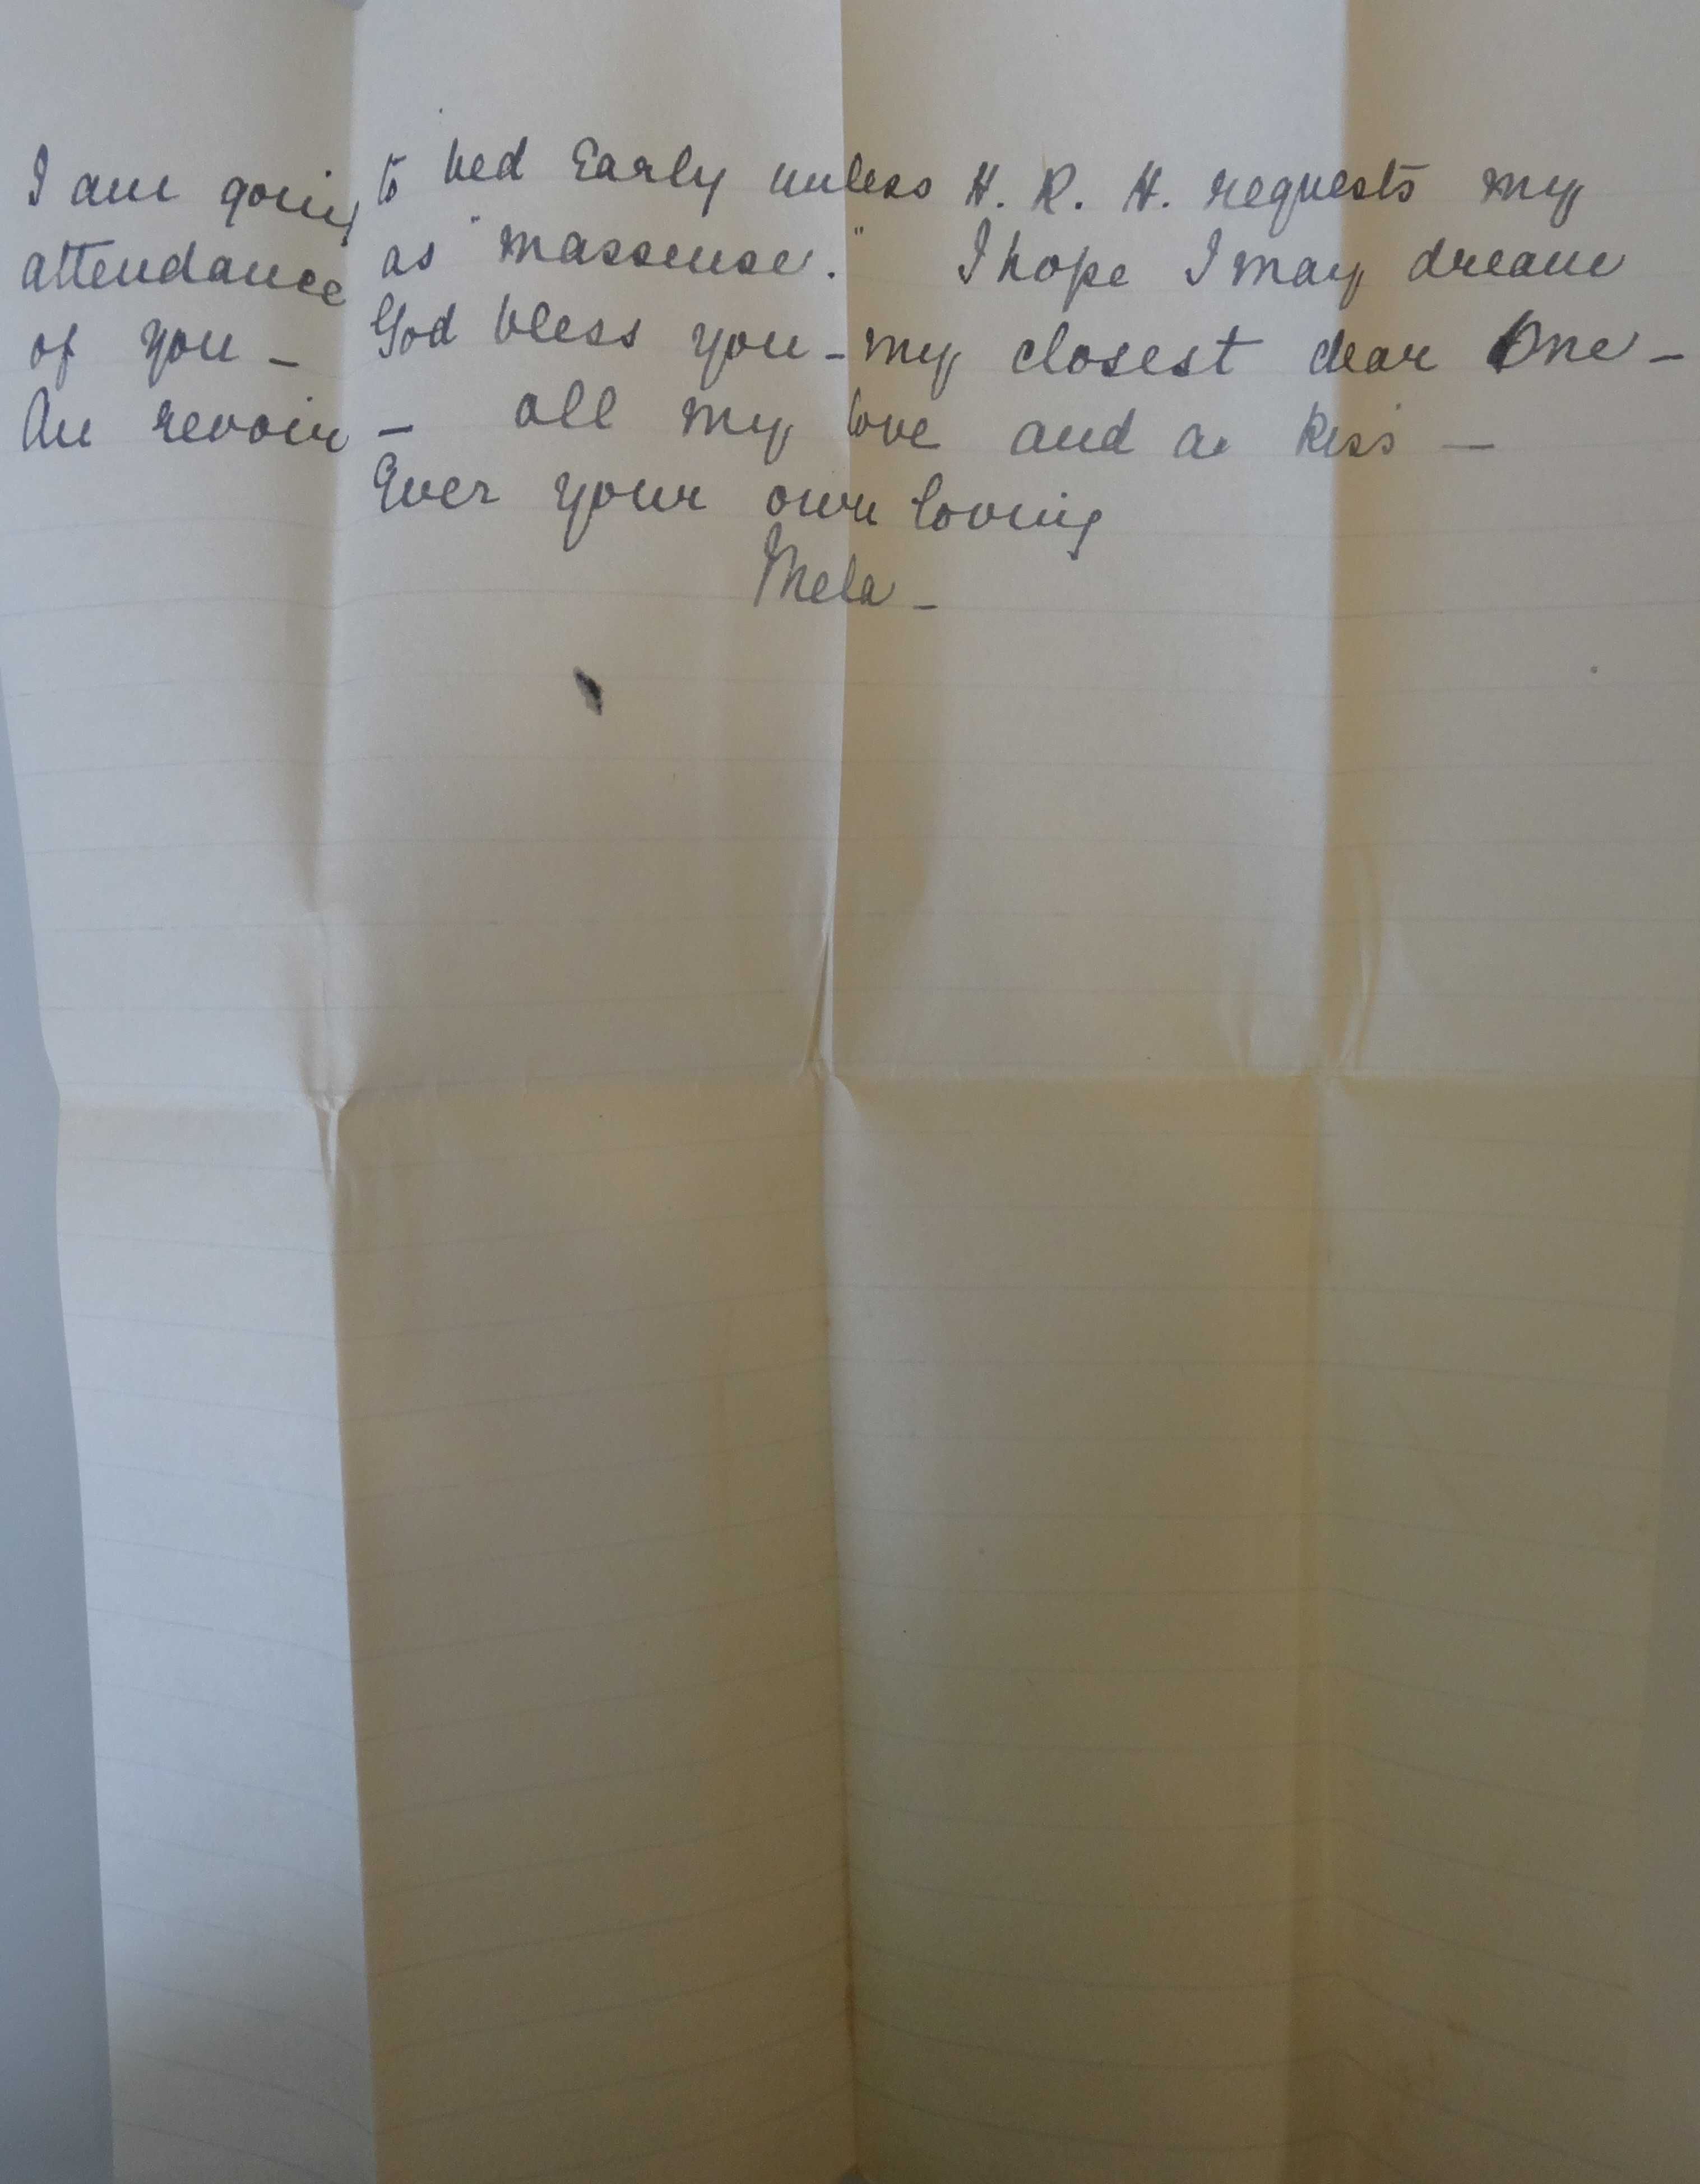 I am going to bed Early unless H. R. H. requests my
attendance as "masseuse." I hope I may dream
of you - God bless you - my closest dear One -
Au revoir - all my love and a kiss -
Ever your own loving
Mela -